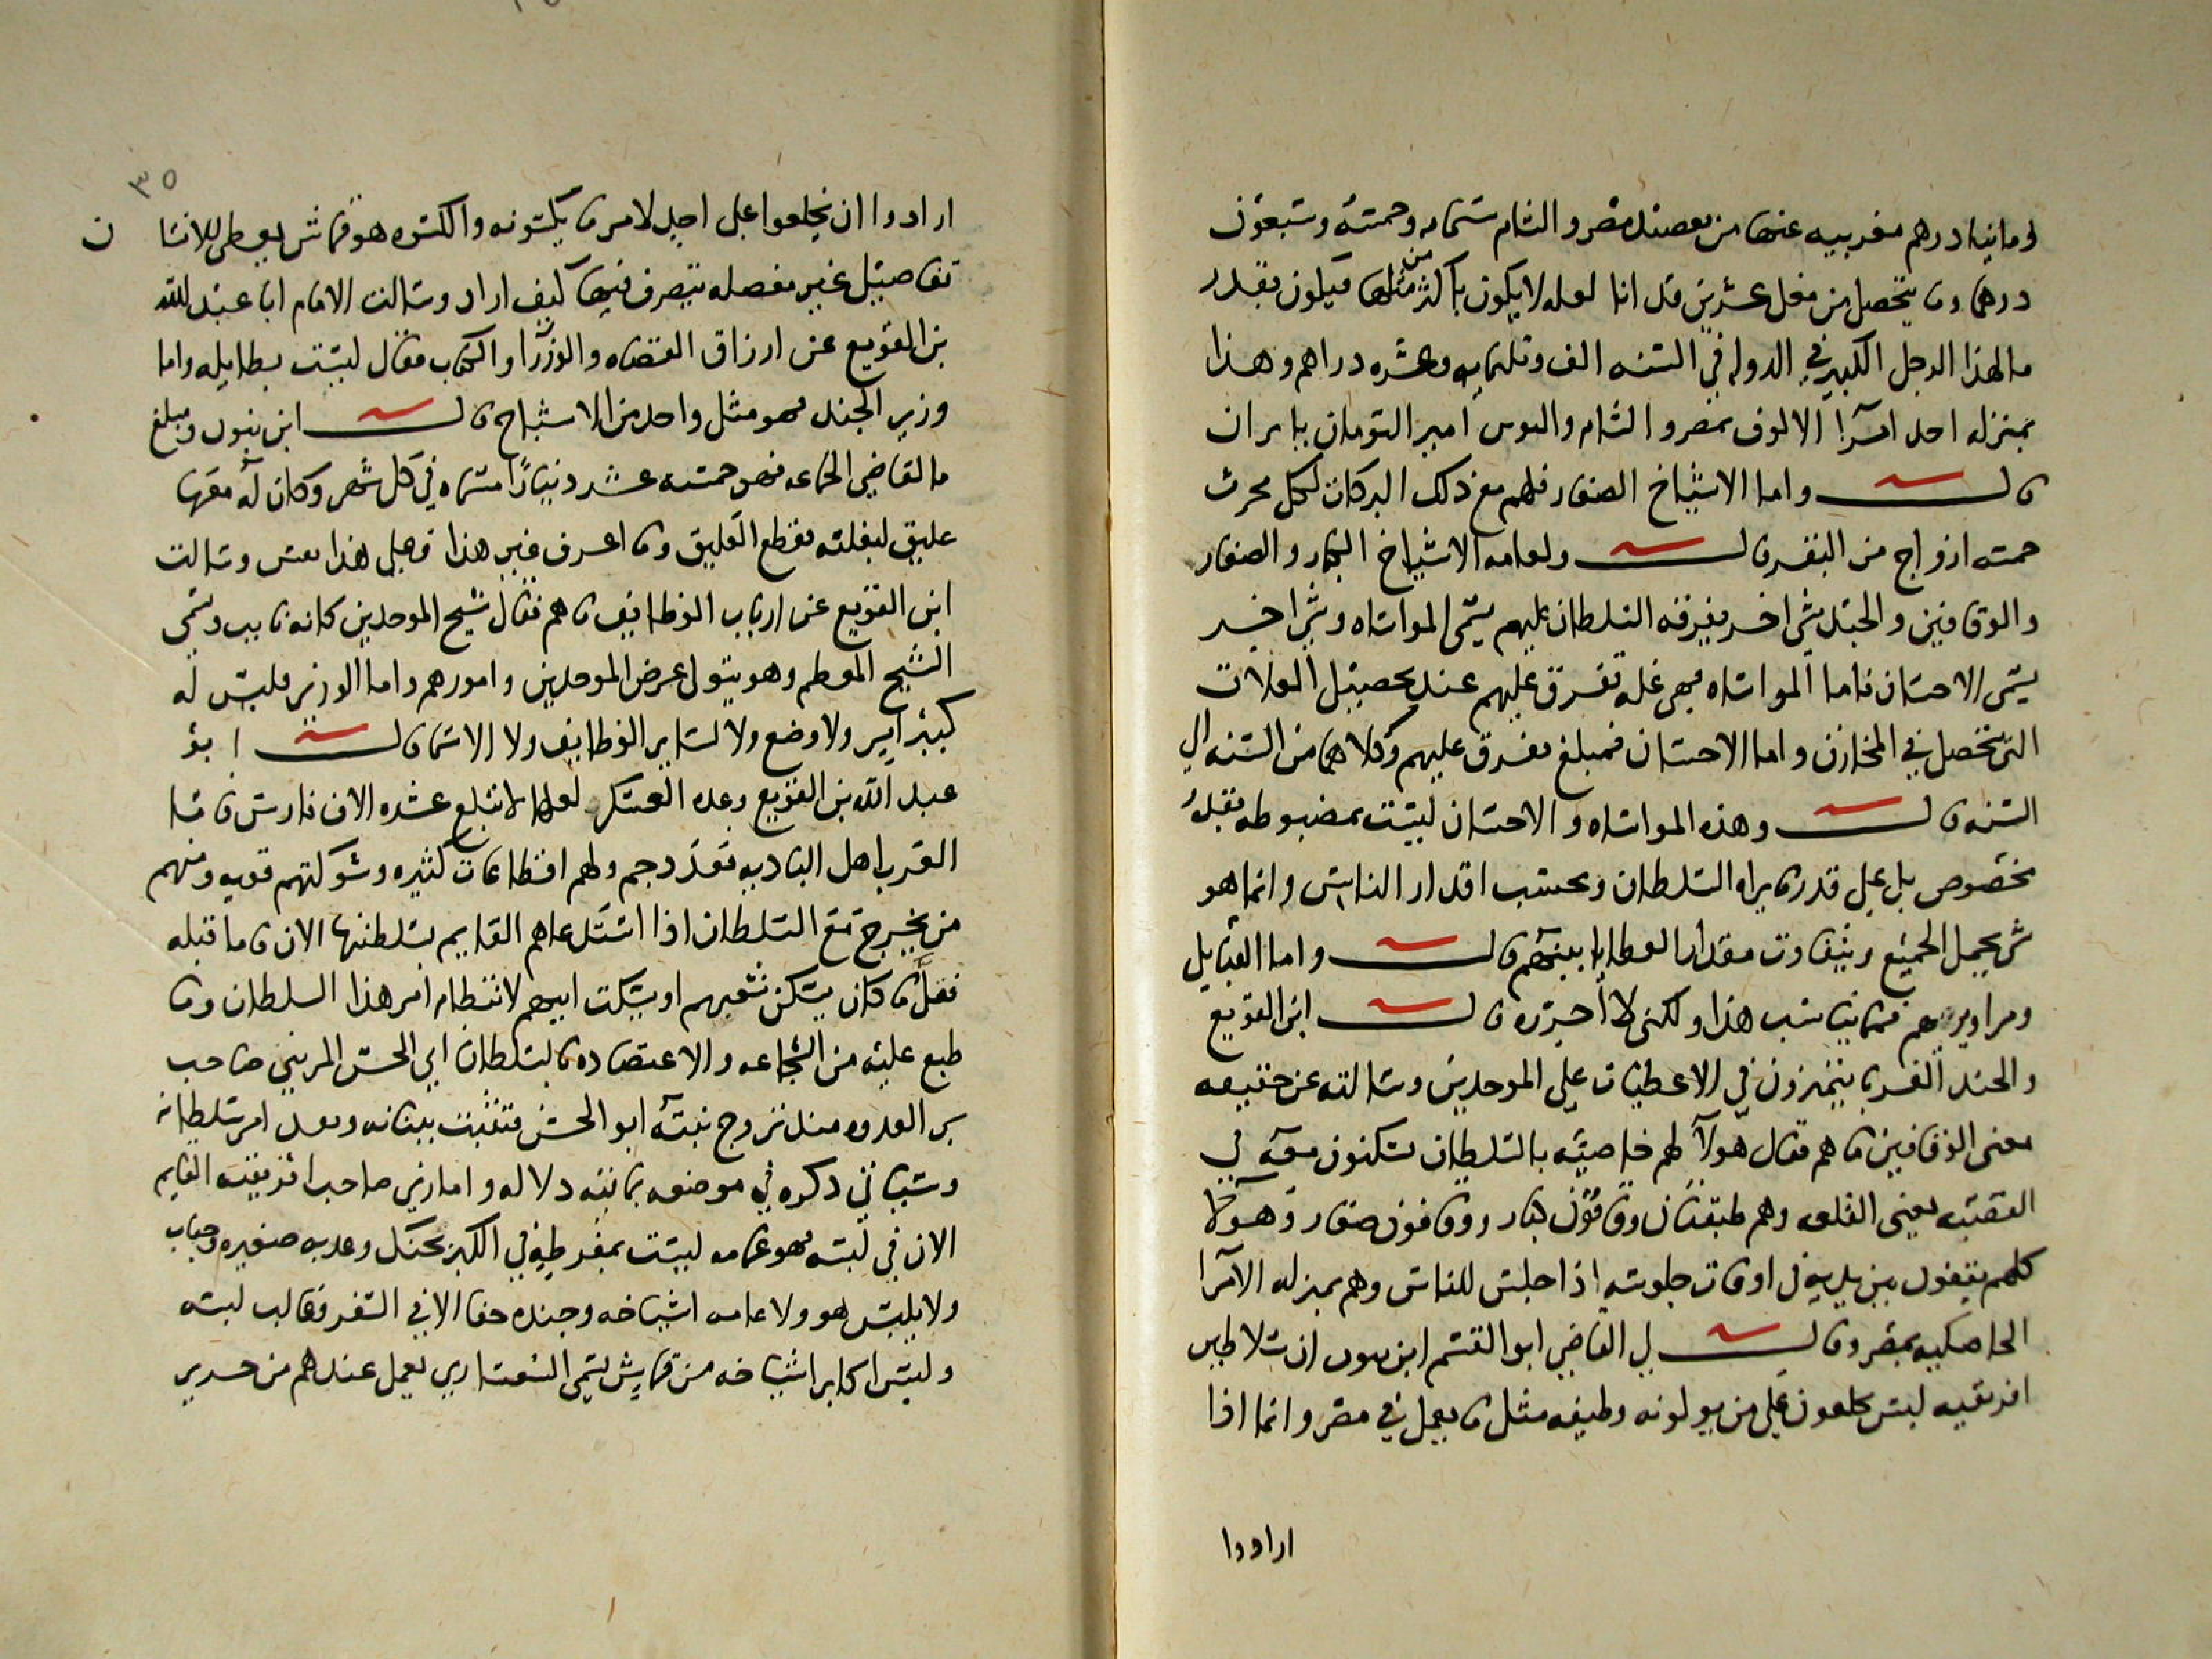 وما نيا درهم مغربيه عنها من معصنله مصر والشام ستمايه وخمسة وسبعون
درهما وما يتحصل من مغل عشرين قد انا لعله لا يكون باكثر من مثلها فيكون بقدر
ما لهذا الرجل الكبير في الدوله في السنه الف وثلثمايه وعشره دراهم وهذا
بمنزله احد امرا الالوف بمصر والشام والنوين امير التومان بايران
قال واما الاشياخ الصغار فلهم مع ذلك البركات لكل محرث
خمسه ازواج من البقر قال ولعامه الاشياخ الكبار والصغار
والوقافين والجند شي اخر يفرقه السلطان عليهم يسمى المواساه وشي اخر
يسمى الاحسان فاما المواساه فهي غله تفرق عليهم عند تحصيل الغلات
التي تحصل في المخازن واما الاحسان فمبلغ يفرق عليهم وكلاهما من السنه الى
السنه قال وهذه المواساه والاحسان ليست بمضبوطه بقدر
مخصوص بل على قدر ما يراه السلطان وبحسب اقدار الناس وانما هو
شي يجمل الجميع ويتفاوت مقدار العطايا بينهم قال واما القبايل
ومزاويرهم فما يناسب هذا ولكني لا احرره قال ابن القويع
والجند الغربا يتميزون في الاعطيات على الموحدين وسالته عن حقيقه
معنى الوقافين ما هم فقال هولا لهم خاصيه بالسلطان يسكنون معه في
القصبه يعني القلعه وهم طبقتان وقافون كبار ووقافون صغار وهولا
كلهم يقفون بين يديه في اوقات جلوسه اذا جلس للناس وهم بمنزله الامرا
الخاصكيه بمصر وقال لي القاضي ابو القسم ابن بنون ان سلاطين
افريقيه ليس يخلعون على من يولونه وظيفه مثل ما يعمل في مصر وانما اذا
ارادوا
٣٥
ارادوا ان يخلعوا على احد لامر ما يكسونه والكسوه هو قماش يعطى للانسان
تفاصيل غير مفصله يتصرف فيها كيف اراد وسالت الامام ابا عبد الله
بن القويع عن ارزاق القضاه والوزرا والكتاب فقال ليست بطايله واما
وزير الجند فهو مثل واحد من الاشياخ قال ابن بنون ومبلغ
ما لقاضي الجماعه فهو خمسه عشر دينارا مسماه في كل شهر وكان له معها
عليق لبغلته فقطع العليق وما اعرف غير هذا فعلى هذا فقس وسالت
ابن القويع عن ارباب الوظايف ما هم فقال شيخ الموحدين كانه نايب ويسمى
الشيخ المعظم وهو يتولى عرض الموحدين وامورهم واما الوزير فليس له
كبير امير ولا وضع ولا لساير الوظايف ولا الاسما قال ابو
عبد الله بن القويع وعده العسكر لعلها لا تبلغ عشره الاف فارس فاما
العرب اهل الباديه فعدد جم ولهم اقطاعات كثيره وشوكتهم قويه ومنهم
من يخرج مع السلطان اذا استدعاهم القايم بسلطنتها الان فاما قبله
فقل ما كان يسكن شغبهم او يسكت اليهم لانتظام امر هذا السلطان وما
طبع عليه من الشجاعه والاعتضاده بالسلطان ابي الحسن المريني صاحب
بر العدوه منذ تزوج بنته ابو الحسن فتثبت ببنانه وبعد امر سلطانه
وسياتي ذكره في موضعه بما فيه دلاله واما زي صاحب افريقيه القايم
الان في لبسه فهو عمامه ليست بمفرطه في الكبر بحنك وعذبه صغيره وجباب
ولا يلبس هو ولا عامه اشياخه وجنده خفا الا في السفر وغالب لبسه
ولبس اكابر اشياخه من قماش يسمى السفساري يعمل عندهم من حرير